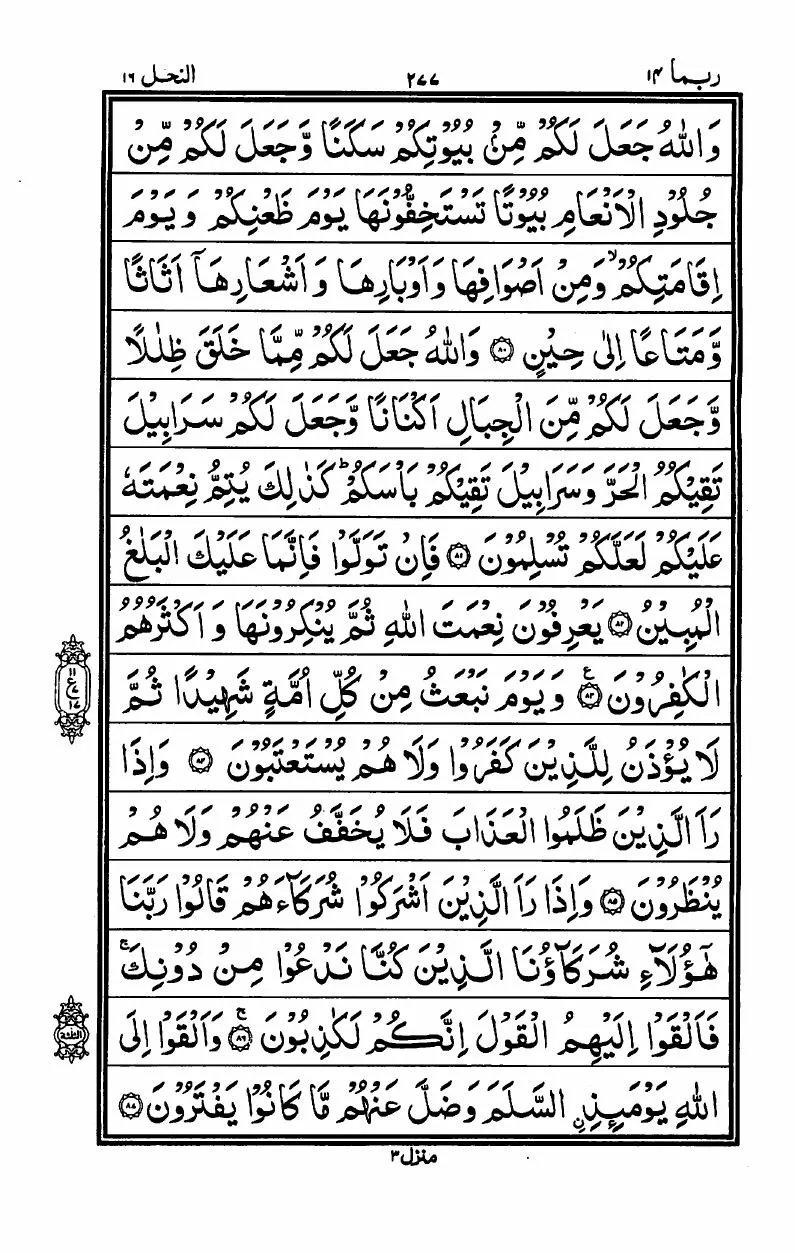 ربما ١٤ ٢٧٧ النحل ١٦
وَاللّٰهُ جَعَلَ لَكُمْ مِّنْۢ بُيُوْتِكُمْ سَكَنًا وَّجَعَلَ لَكُمْ مِّنْ
جُلُوْدِ الْاَنْعَامِ بُيُوْتًا تَسْتَخِفُّوْنَهَا يَوْمَ ظَعْنِكُمْ وَيَوْمَ
اِقَامَتِكُمْ ۙ وَمِنْ اَصْوَافِهَا وَاَوْبَارِهَا وَاَشْعَارِهَاۤ اَثَاثًا
وَّمَتَاعًا اِلٰى حِيْنٍ ۝٨٠ وَاللّٰهُ جَعَلَ لَكُمْ مِّمَّا خَلَقَ ظِلٰلًا
وَّجَعَلَ لَكُمْ مِّنَ الْجِبَالِ اَكْنَانًا وَّجَعَلَ لَكُمْ سَرَابِيْلَ
تَقِيْكُمُ الْحَرَّ وَسَرَابِيْلَ تَقِيْكُمْ بَاْسَكُمْ ؕ كَذٰلِكَ يُتِمُّ نِعْمَتَهٗ
عَلَيْكُمْ لَعَلَّكُمْ تُسْلِمُوْنَ ۝٨١ فَاِنْ تَوَلَّوْا فَاِنَّمَا عَلَيْكَ الْبَلٰغُ
الْمُبِيْنُ ۝٨٢ يَعْرِفُوْنَ نِعْمَتَ اللّٰهِ ثُمَّ يُنْكِرُوْنَهَا وَاَكْثَرُهُمُ
الْكٰفِرُوْنَ ۝٨٣ ع وَيَوْمَ نَبْعَثُ مِنْ كُلِّ اُمَّةٍ شَهِيْدًا ثُمَّ
١١ ع ٧ ١٧
لَا يُؤْذَنُ لِلَّذِيْنَ كَفَرُوْا وَلَا هُمْ يُسْتَعْتَبُوْنَ ۝٨٤ وَاِذَا
رَاَ الَّذِيْنَ ظَلَمُوا الْعَذَابَ فَلَا يُخَفَّفُ عَنْهُمْ وَلَا هُمْ
يُنْظَرُوْنَ ۝٨٥ وَاِذَا رَاَ الَّذِيْنَ اَشْرَكُوْا شُرَكَآءَهُمْ قَالُوْا رَبَّنَا
هٰۤؤُلَآءِ شُرَكَآؤُنَا الَّذِيْنَ كُنَّا نَدْعُوْا مِنْ دُوْنِكَ ۚ
فَاَلْقَوْا اِلَيْهِمُ الْقَوْلَ اِنَّكُمْ لَكٰذِبُوْنَ ۝٨٦ ۚ وَاَلْقَوْا اِلَى
اللّٰهِ يَوْمَىِٕذِ ِۨالسَّلَمَ وَضَلَّ عَنْهُمْ مَّا كَانُوْا يَفْتَرُوْنَ ۝٨٧
منزل ٣